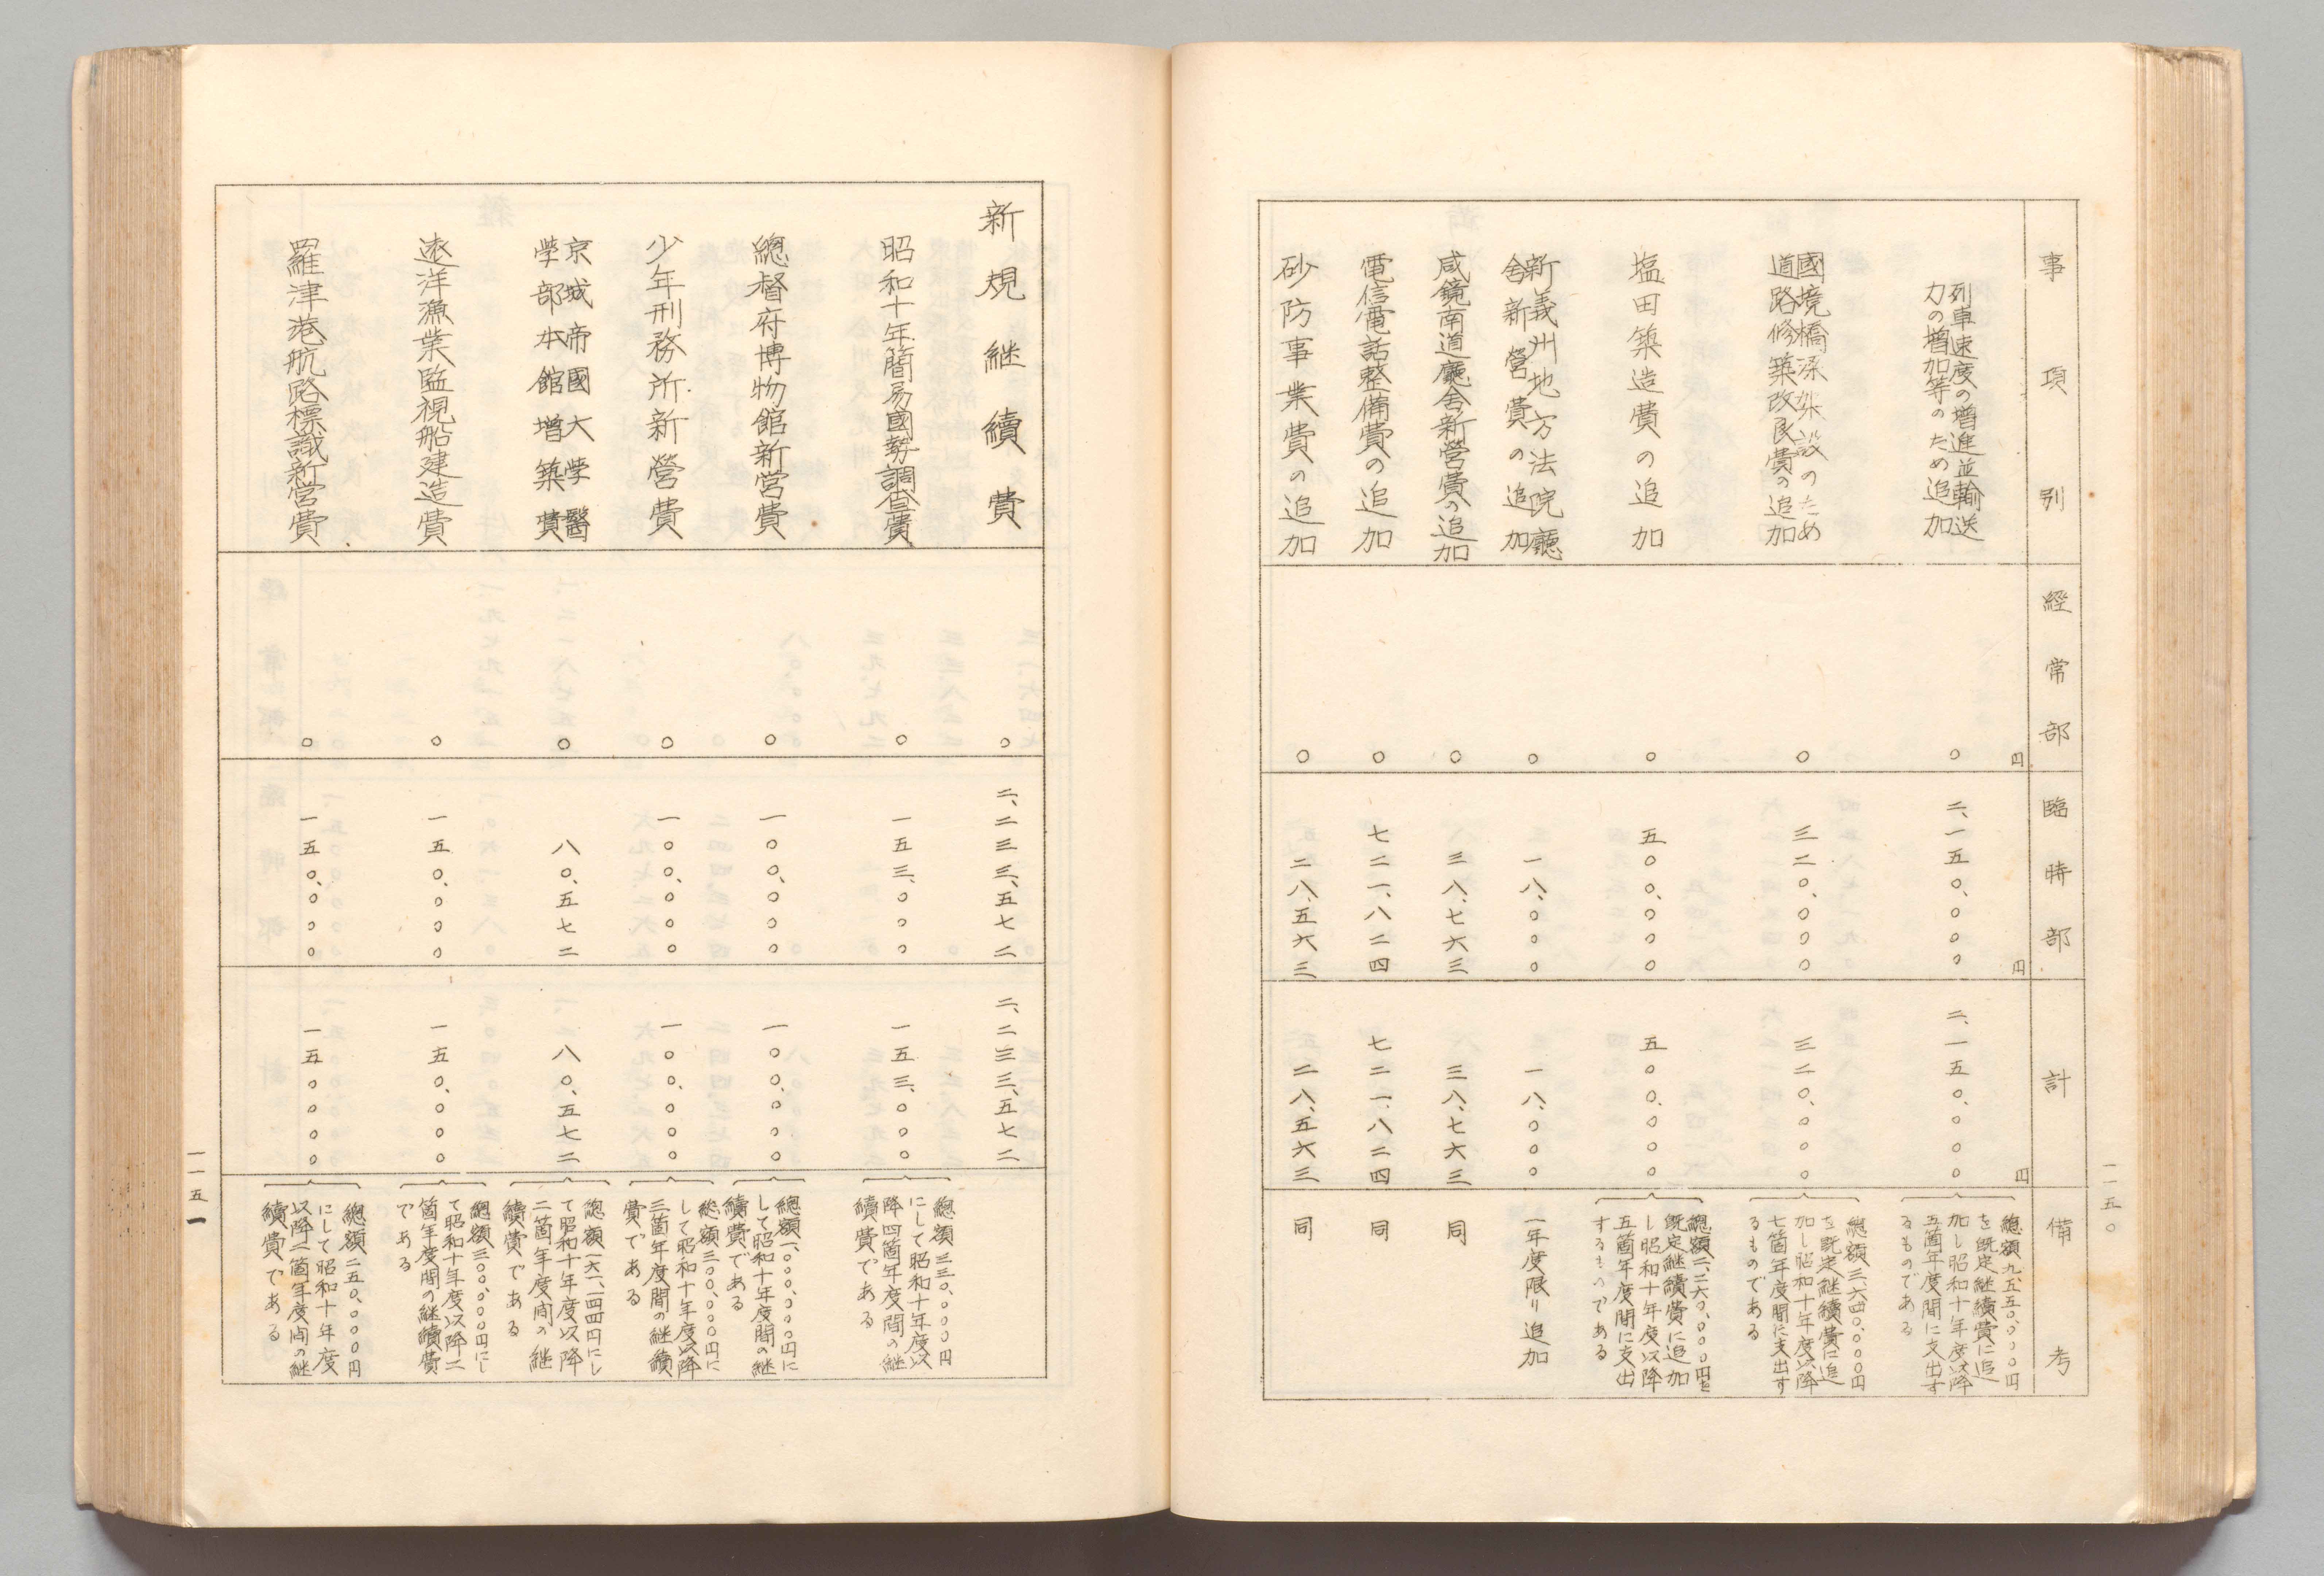 一一五〇
事項別
経常部
臨時部
計
備考
円
円
円
列車速度の増進並輸送
力の増加等のため追加
〇
二、一五〇、〇〇〇
二、一五〇、〇〇〇
總額九、五五〇、〇〇〇円
を既定継續費に追
加し昭和十年度以降
五箇年度間に支出す
るものである
國境橋梁架設のため
道路修築改良費の追加
〇
三二〇、〇〇〇
三二〇、〇〇〇
總額三、六四〇、〇〇〇円
を既定継續費に追
加し昭和十年度以降
七箇年度間に支出す
るものである
塩田築造費の追加
〇
五〇〇、〇〇〇
五〇〇、〇〇〇
總額二、二六〇、〇〇〇円を
既定継續費に追加
し昭和十年度以降
五箇年度間に支出
するものである
新義州地方法院廳
舍新營費の追加
〇
一八、〇〇〇
一八、〇〇〇
一年度限り追加
咸鏡南道廳舍新營費の追加
〇
三八、七六三
三八、七六三
同
電信電話整備費の追加
〇
七二一、八二四
七二一、八二四
同
砂防事業費の追加
〇
二八、五六三
二八、五六三
同
新規継續費
〇
二、二三三、五七二
二、二三三、五七二
昭和十年簡易國勢調査費
〇
一五三、〇〇〇
一五三、〇〇〇
總額三三〇、〇〇〇円
にして昭和十年度以
降四箇年度間の継
續費である
總督府博物館新営費
〇
一〇〇、〇〇〇
一〇〇、〇〇〇
總額一、〇〇〇、〇〇〇円に
して昭和十年度間の継
續費である
少年刑務所新營費
〇
一〇〇、〇〇〇
一〇〇、〇〇〇
総額三〇〇、〇〇〇円に
して昭和十年度以降
三箇年度間の継續
費である
京城帝國大学醫
学部本館増築費
〇
八〇、五七二
八〇、五七二
總額一六一、一四四円にし
て昭和十年度以降
二箇年度间の継
續費である
遠洋漁業監視船建造費
〇
一五〇、〇〇〇
一五〇、〇〇〇
總額三〇〇、〇〇〇円にし
て昭和十年度以降二
箇年度間の継續費
である
羅津港航路標識新営費
〇
一五〇、〇〇〇
一五〇〇〇〇
總額二五〇、〇〇〇円
にして昭和十年度
以降二箇年度间の継
續費である
一一五一